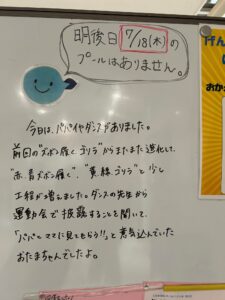 明後日 7/18(木)の
プールはありません。
今日は、パパイヤダンスがありました。
前回の"ズボン履くゴリラ"からまたまた進化して、
"赤・青ズボン履く"、"黄線ゴリラ"と少し
工程が増えました。ダンスの先生から
運動会で披露することを聞いて、
「パパとママに見てもらう!!」と意気込んでいた
おたまちゃんでしたよ。
げん
おか